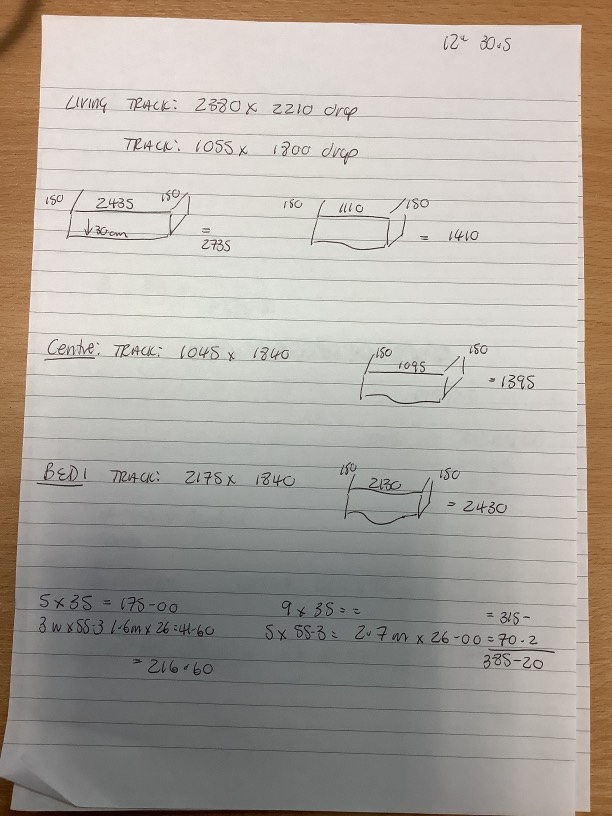 12" 30.5
LIVING TRACK: 2380 x 2210 drop
TRACK: 1055 x 1800 drop
150 2435 150 150 1110 150
↓30cm = 2735 = 1410
Centre: TRACK: 1045 x 1840 150 1095 150 = 1395
BED1 TRACK: 2175 x 1840 150 2130 150 = 2430
5 x 35 = 175-00 9 x 35 = = = 315-
3 w x 55.3 1-6m x 26 = 41-60 5 x 55.3 = 2.7m x 26-00 = 70.2
= 216.60 385-20